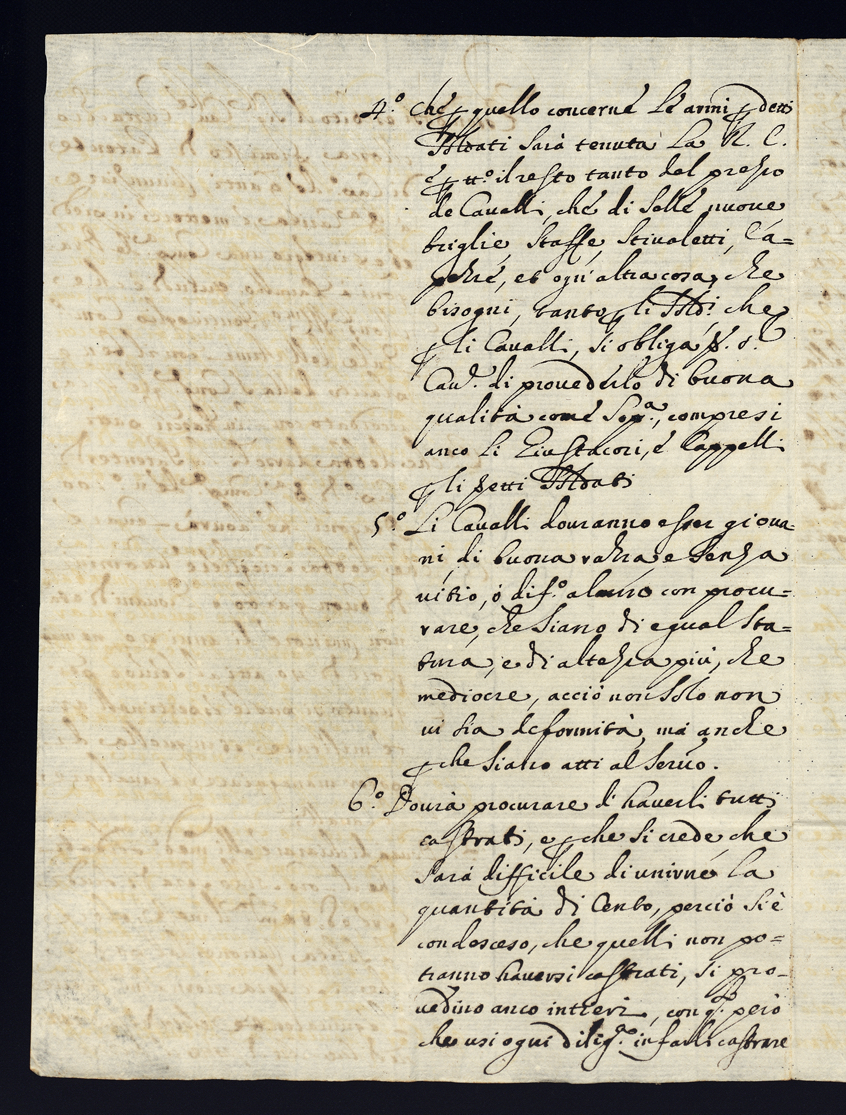 4.º che p quello concerne le armi p detti
Soldati sarà tenuta la R. C.
e p tt.º il resto tanto del prezzo
de Cavalli, che di selle nuove
briglie, staffe, stivaletti, Ca=
pezze, et ogn'altra cosa, che
bisogni, tanto p li Sold.i che
p li Cavalli, si obliga
Cav.r di provederlo di buona
qualità come sop.a, compresi
anco li Giustacori, e Cappelli
p li detti Soldati
5.º Li Cavalli douranno esser gioua-
ni di buona razza, e senza
uitio, ò dif.º alcuno con procu-
rare, che siano di egual sta=
tura, e di altezza più, che
mediocre, acciò non solo non
ui sia deformità, ma anche
p che siano atti al seruo.
6.º Dourà procurare di hauerli tutti
castrati, e p che si crede che
sarà difficile di unirne la
quantità di Cento, perciò si è
condesceso, che quelli non po=
tranno hauersi castrati, si pro-
uedino anco intieri, con q.º però
che usi ogni dilig.a in farli castrare